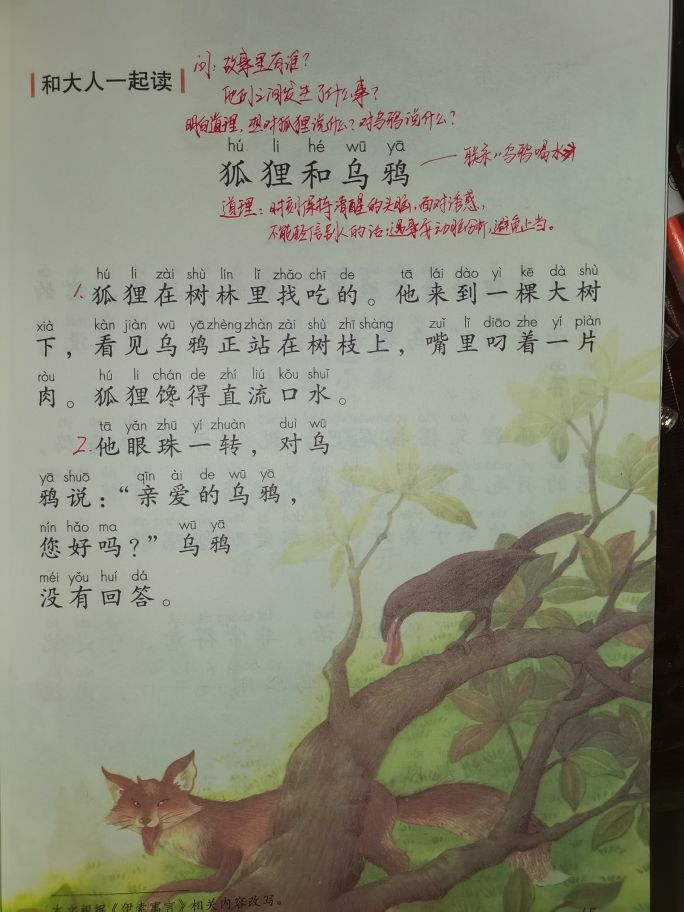 和大人一起读
问：故事里有谁？
他们之间发生了什么事？
明白道理，想对狐狸说什么？对乌鸦说什么？
hú li hé wū yā
狐狸和乌鸦
联系《乌鸦喝水》
道理：时刻保持清醒的头脑，面对诱惑，
不能轻信别人的话；遇事要动脑分析，避免上当。
hú li zài shù lín lǐ zhǎo chī de tā lái dào yì kē dà shù
1.狐狸在树林里找吃的。他来到一棵大树
xià kàn jiàn wū yā zhèng zhàn zài shù zhī shàng zuǐ lǐ diāo zhe yí piàn
下，看见乌鸦正站在树枝上，嘴里叼着一片
ròu hú li chán de zhí liú kǒu shuǐ
肉。狐狸馋得直流口水。
tā yǎn zhū yí zhuàn duì wū
2.他眼珠一转，对乌
yā shuō qīn ài de wū yā
鸦说：“亲爱的乌鸦，
nín hǎo ma wū yā
您好吗？”乌鸦
méi yǒu huí dá
没有回答。
本文根据《伊索寓言》相关内容改写。